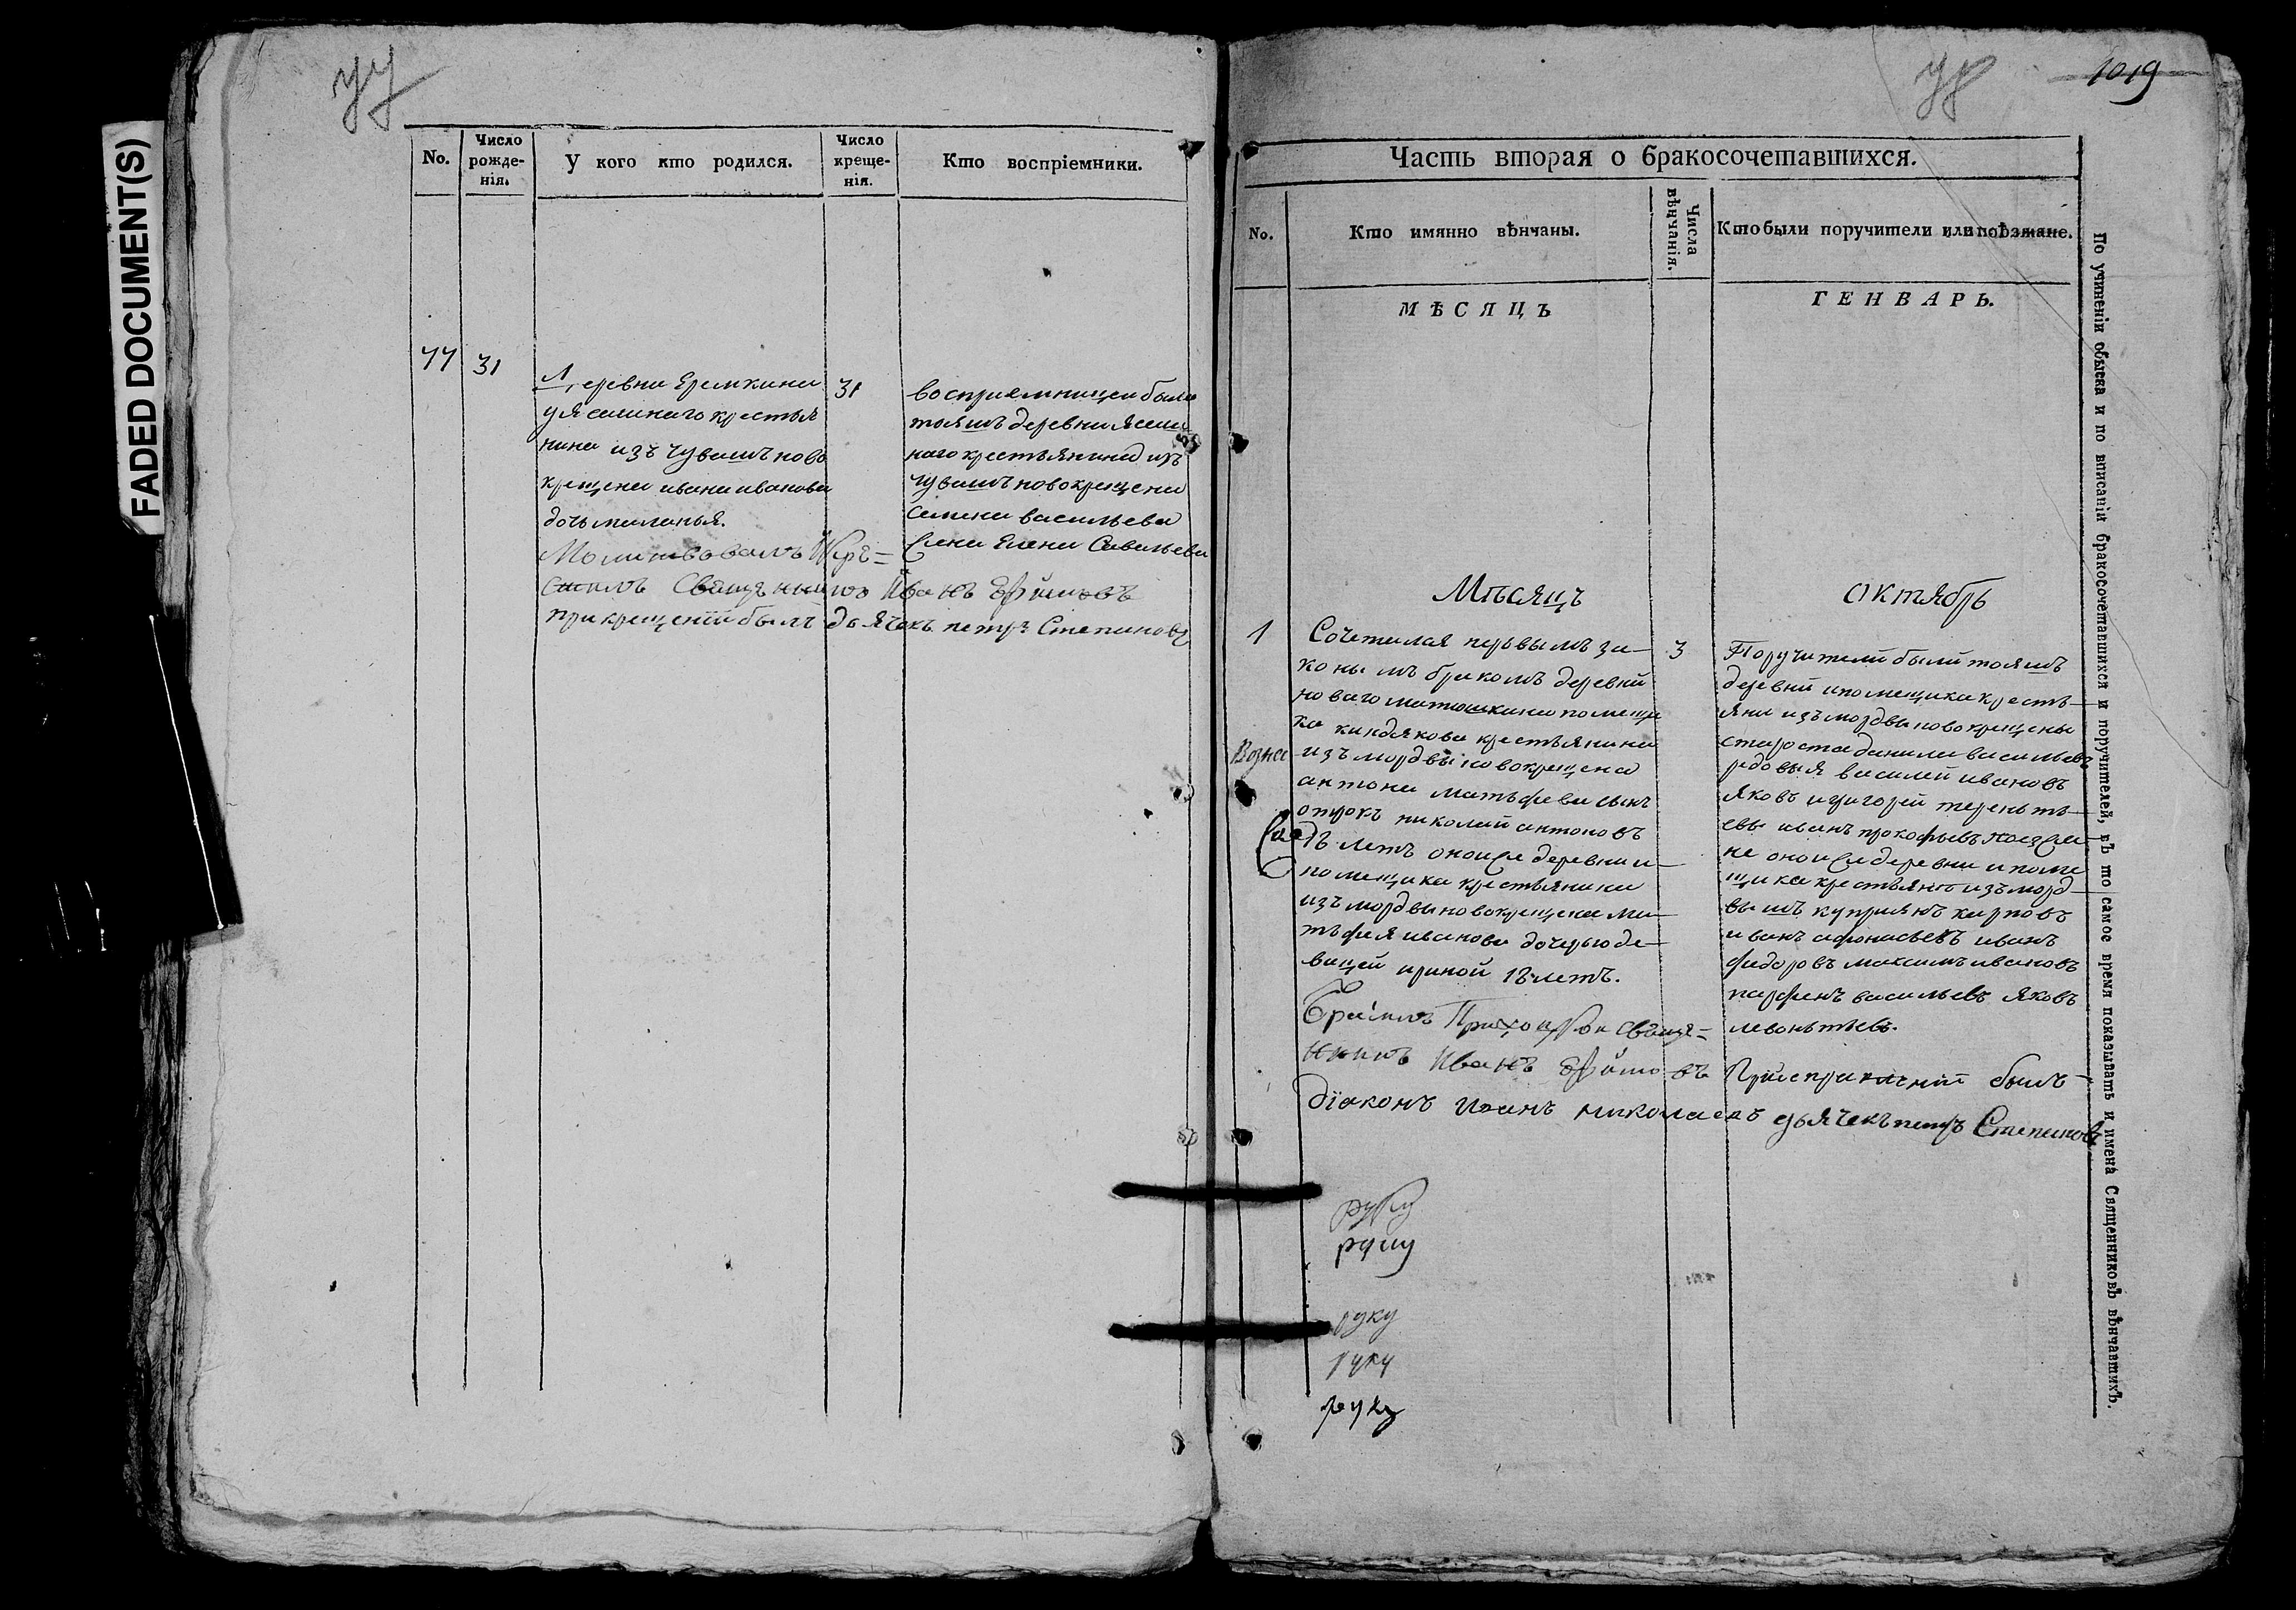 FADED DOCUMENT(S)
No.
Число рожде-нія.
У кого кто родился.
Число креще-нія.
Кто воспріемники.
77 31
Деревни Еремкини
уясашнаго крестья
нина изъ чувашъ ново
крещена ивана иванова
дочь маланья.
Молитвовалъ и кре=
стилъ Священникъ Иванъ
при крещеніи былъ дьячекъ петръ Степановъ
31
восприемницеи была
тояшъ деревни ясаш
наго крестьянина изъ
чувашъ новокрещена
Семена васильева
жена Елена Савельева
1019
Часть вторая о бракосочетавшихся.
No.
Кто имянно вѣнчаны.
Числа вѣнчанія.
Кто были поручители или поѣзжане.
МѢСЯЦЪ
ГЕНВАРЬ.
Мѣсяцъ
октябрь
1
Сочетался первымъ за-
конымъ бракомъ деревни
новаго матюшкина помещи
ка киндякова крестьянина
изъ мордвы новокрещена
антона матьфеева сынъ
отрокъ николай антоновъ
летъ оноиже деревни и-
помещика крестьянина
изъ мордвы новокрещена ма-
тьфея иванова дочерью де-
вицей ириной 18 летъ.
Священ=
никъ Иванъ
діаконъ иванъ николаевъ дьячекъ петръ Степановъ
3
Поручители были тояшъ
деревни ипомещика кресть-
яна изъ мордвы новокрещены
староста данила васильевъ
рядовыя василей ивановъ
яковъ игригорей тереньть-
евы иванъ прокофьевъ поезжа-
не оноиже деревни и поме
щика крестьяне изъ морд-
выжъ куприянъ карповъ
иванъ афонасьевъ иванъ
федоровъ максимъ ивановъ
парфенъ васильевъ яковъ
леоньтьевъ.
былъ
руку
руку
руку
руку
руку
По учиненіи обыска и по вписаніи бракосочетавшихся и поручителей, въ то самое время показывать и имена Священниковъ вѣнчавшихъ.